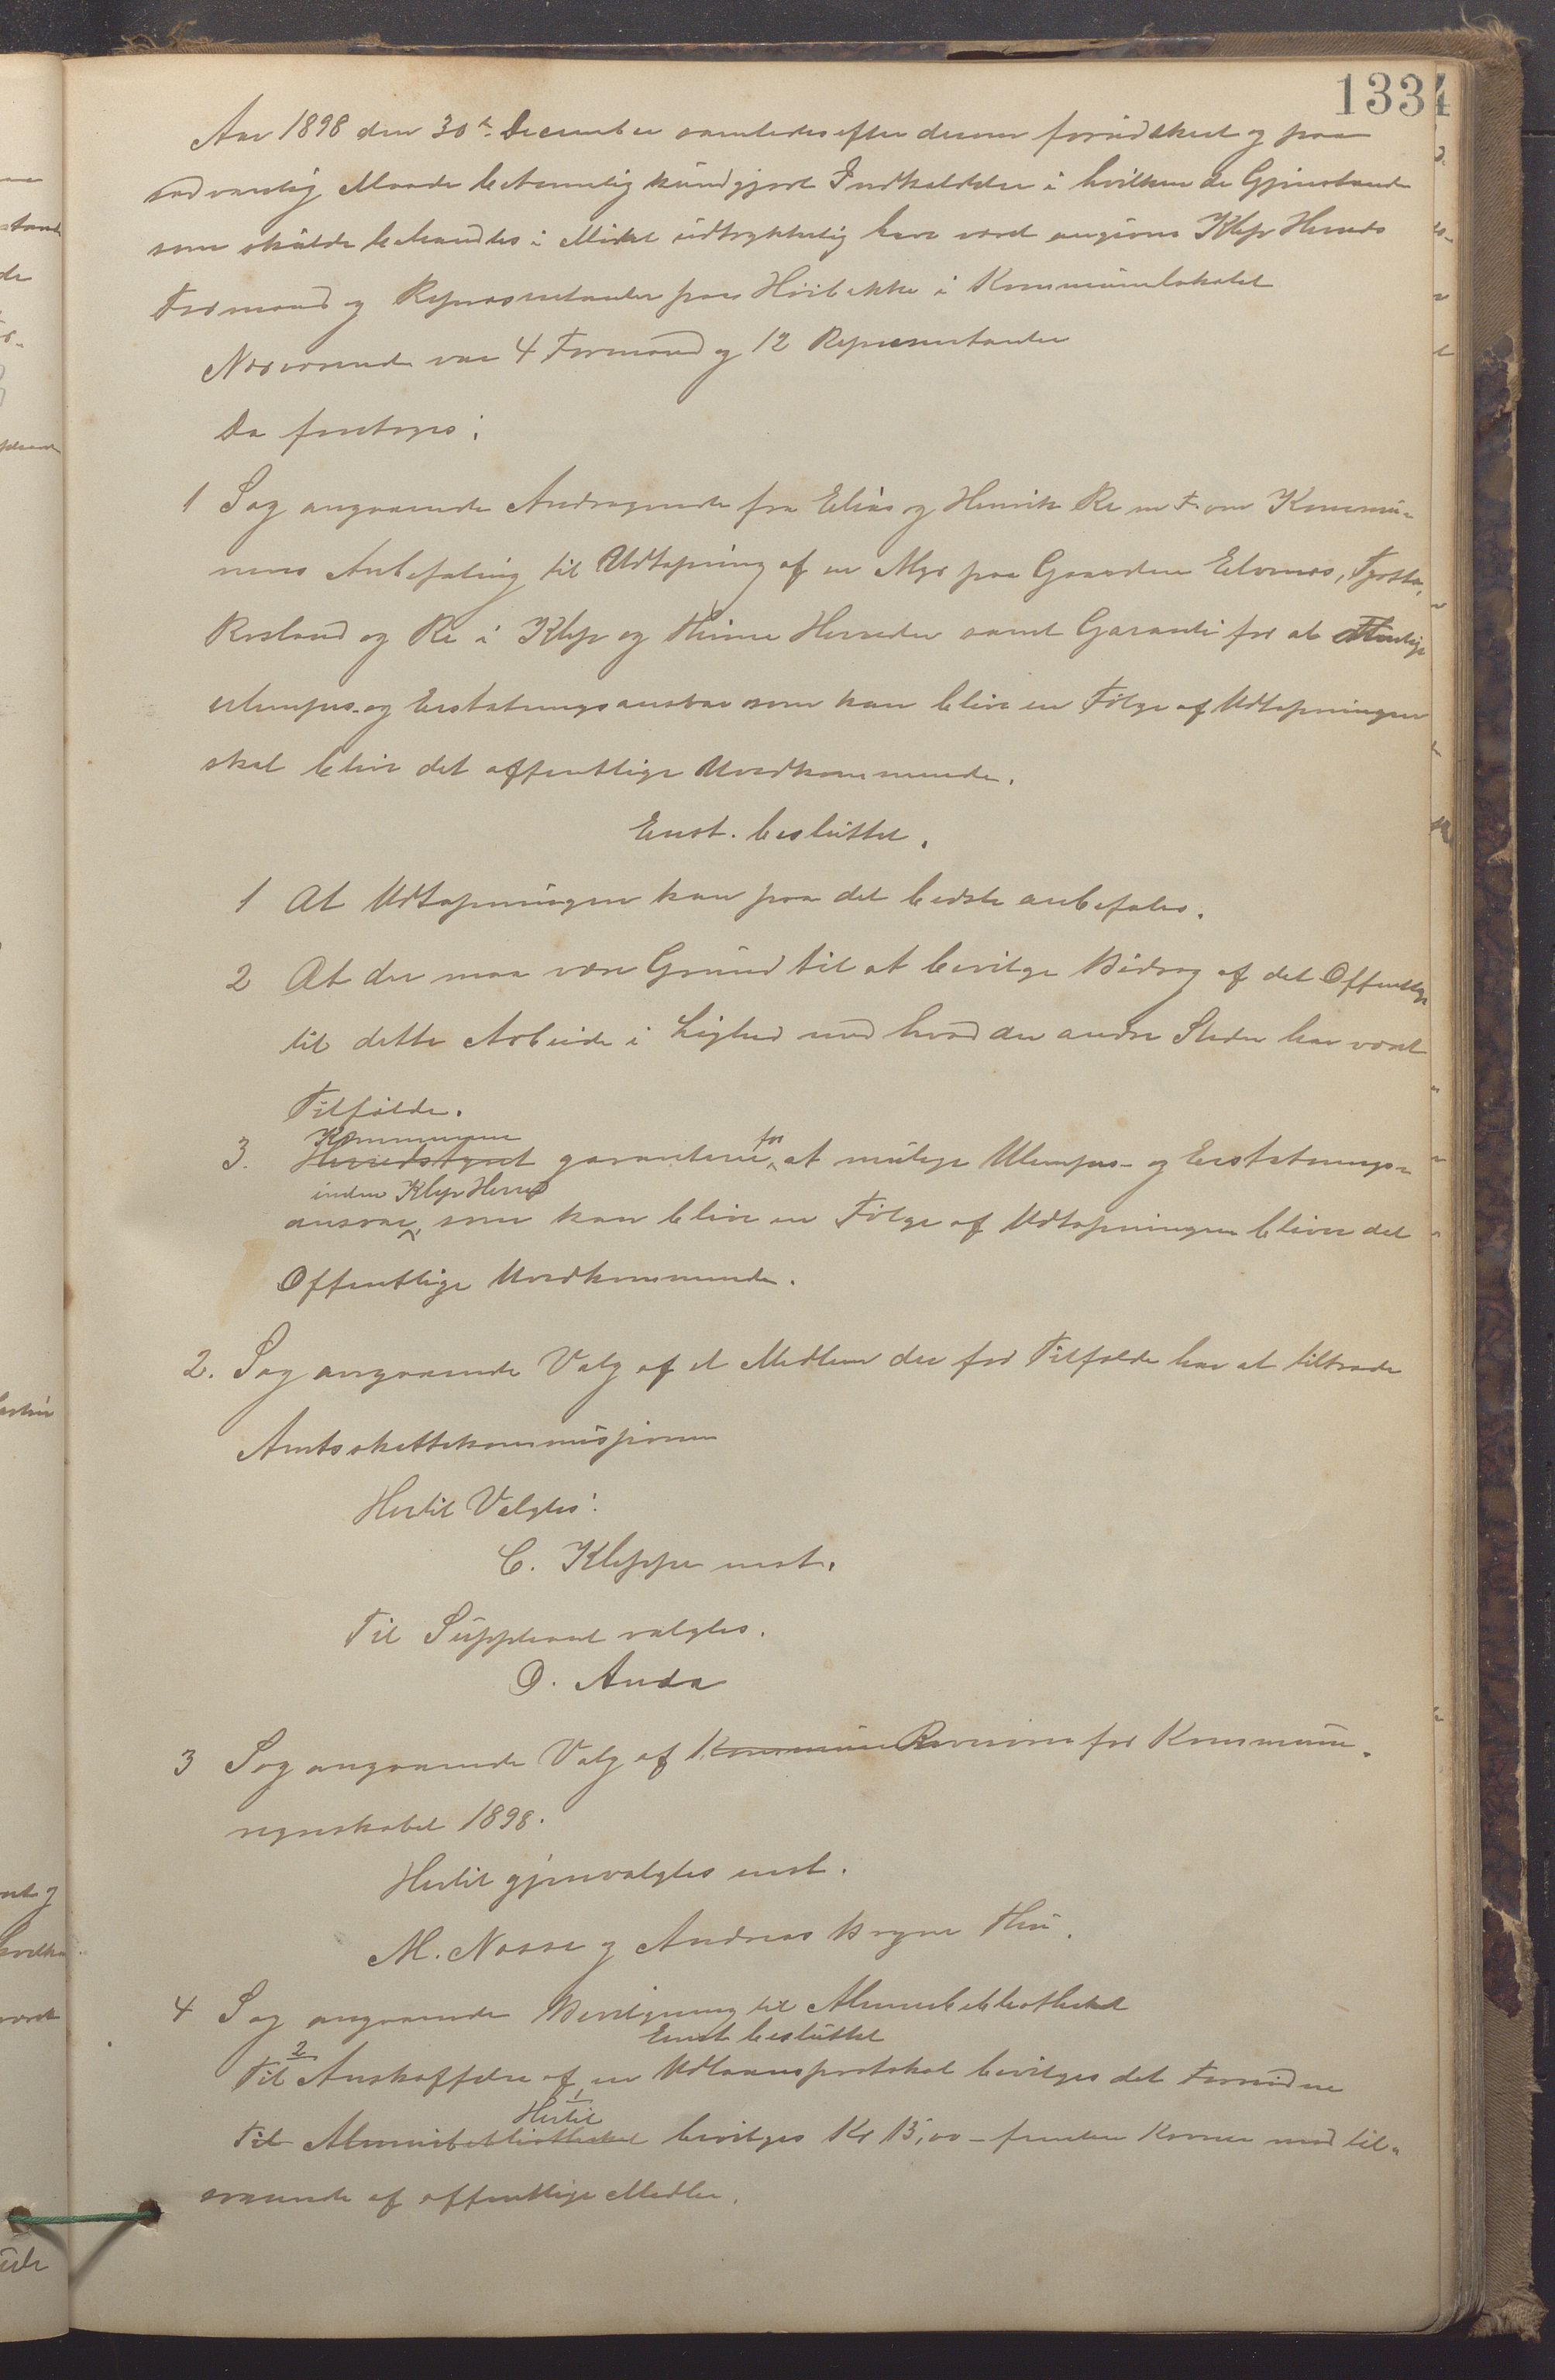 133
Aar 1898 den 30te December samledes efter derom forud skeet og paa
sedvanlig Maade betimelig kundgjort Indkaldelse i hvilken de Gjenstande
som skulde behandles i Mødet udtrykkelig have været angivne Klep Herreds
Formænd og Repræsentanter paa Høibakke i Kommunelokalet
Nærværende var 4 Formænd og 12 Representanter
Da foretoges:
1 Sag angaaende Andragende fra Elias og Henrik Re m F. om Kommu-
nens Anbefaling til Udtapning af en Myr paa Gaardene Elvenes, Tjøtta,
Rosland og Re i Klep og Thime Herreder samt Garanti for at
ulempes- og Erstatningsansvar som kan blive en Følge af Udtapningen
skal blive det offentlige Uvedkommende.
Enst. besluttet.
1 At Udtapningen kan paa det bedste anbefales.
2 At der maa være Grund til at bevilge Bidrag af det Offentlige
til dette Arbeide i Lighed med hvad der andre Steder har været
Tilfælde.
Kommunen
3. Herredstyret garanterer for at mulige Ulempes- og Erstatnings-
inden Klep Herred
ansvar, som kan blive en Følge af Udtapningen bliver det
Offentlige Uvedkommende.
2. Sag angaaende Valg af et Medlem der for Tilfælde har at tiltræde
Amtsskattekommisjonen
Hertil Valgtes:
C. Kleppe enst.
Til Suppleant valgtes.
O. Anda
3 Sag angaaende Valg af Kommune Revisorer for Kommune-
regnskabet 1898.
Hertil gjenvalgtes enst.
M. Næsse og Andreas Bryne Thu.
4 Sag angaaende Bevilgning til Almuebibliotheket
Enst besluttet
2
Til Anskaffelse af en Udlaansprotokol bevilges det Fornødne
1
Hertil
Til Almuebibliotheket bevilges Kr 15,00 - femten Kroner mod til-
svarende af offentlige Midler.